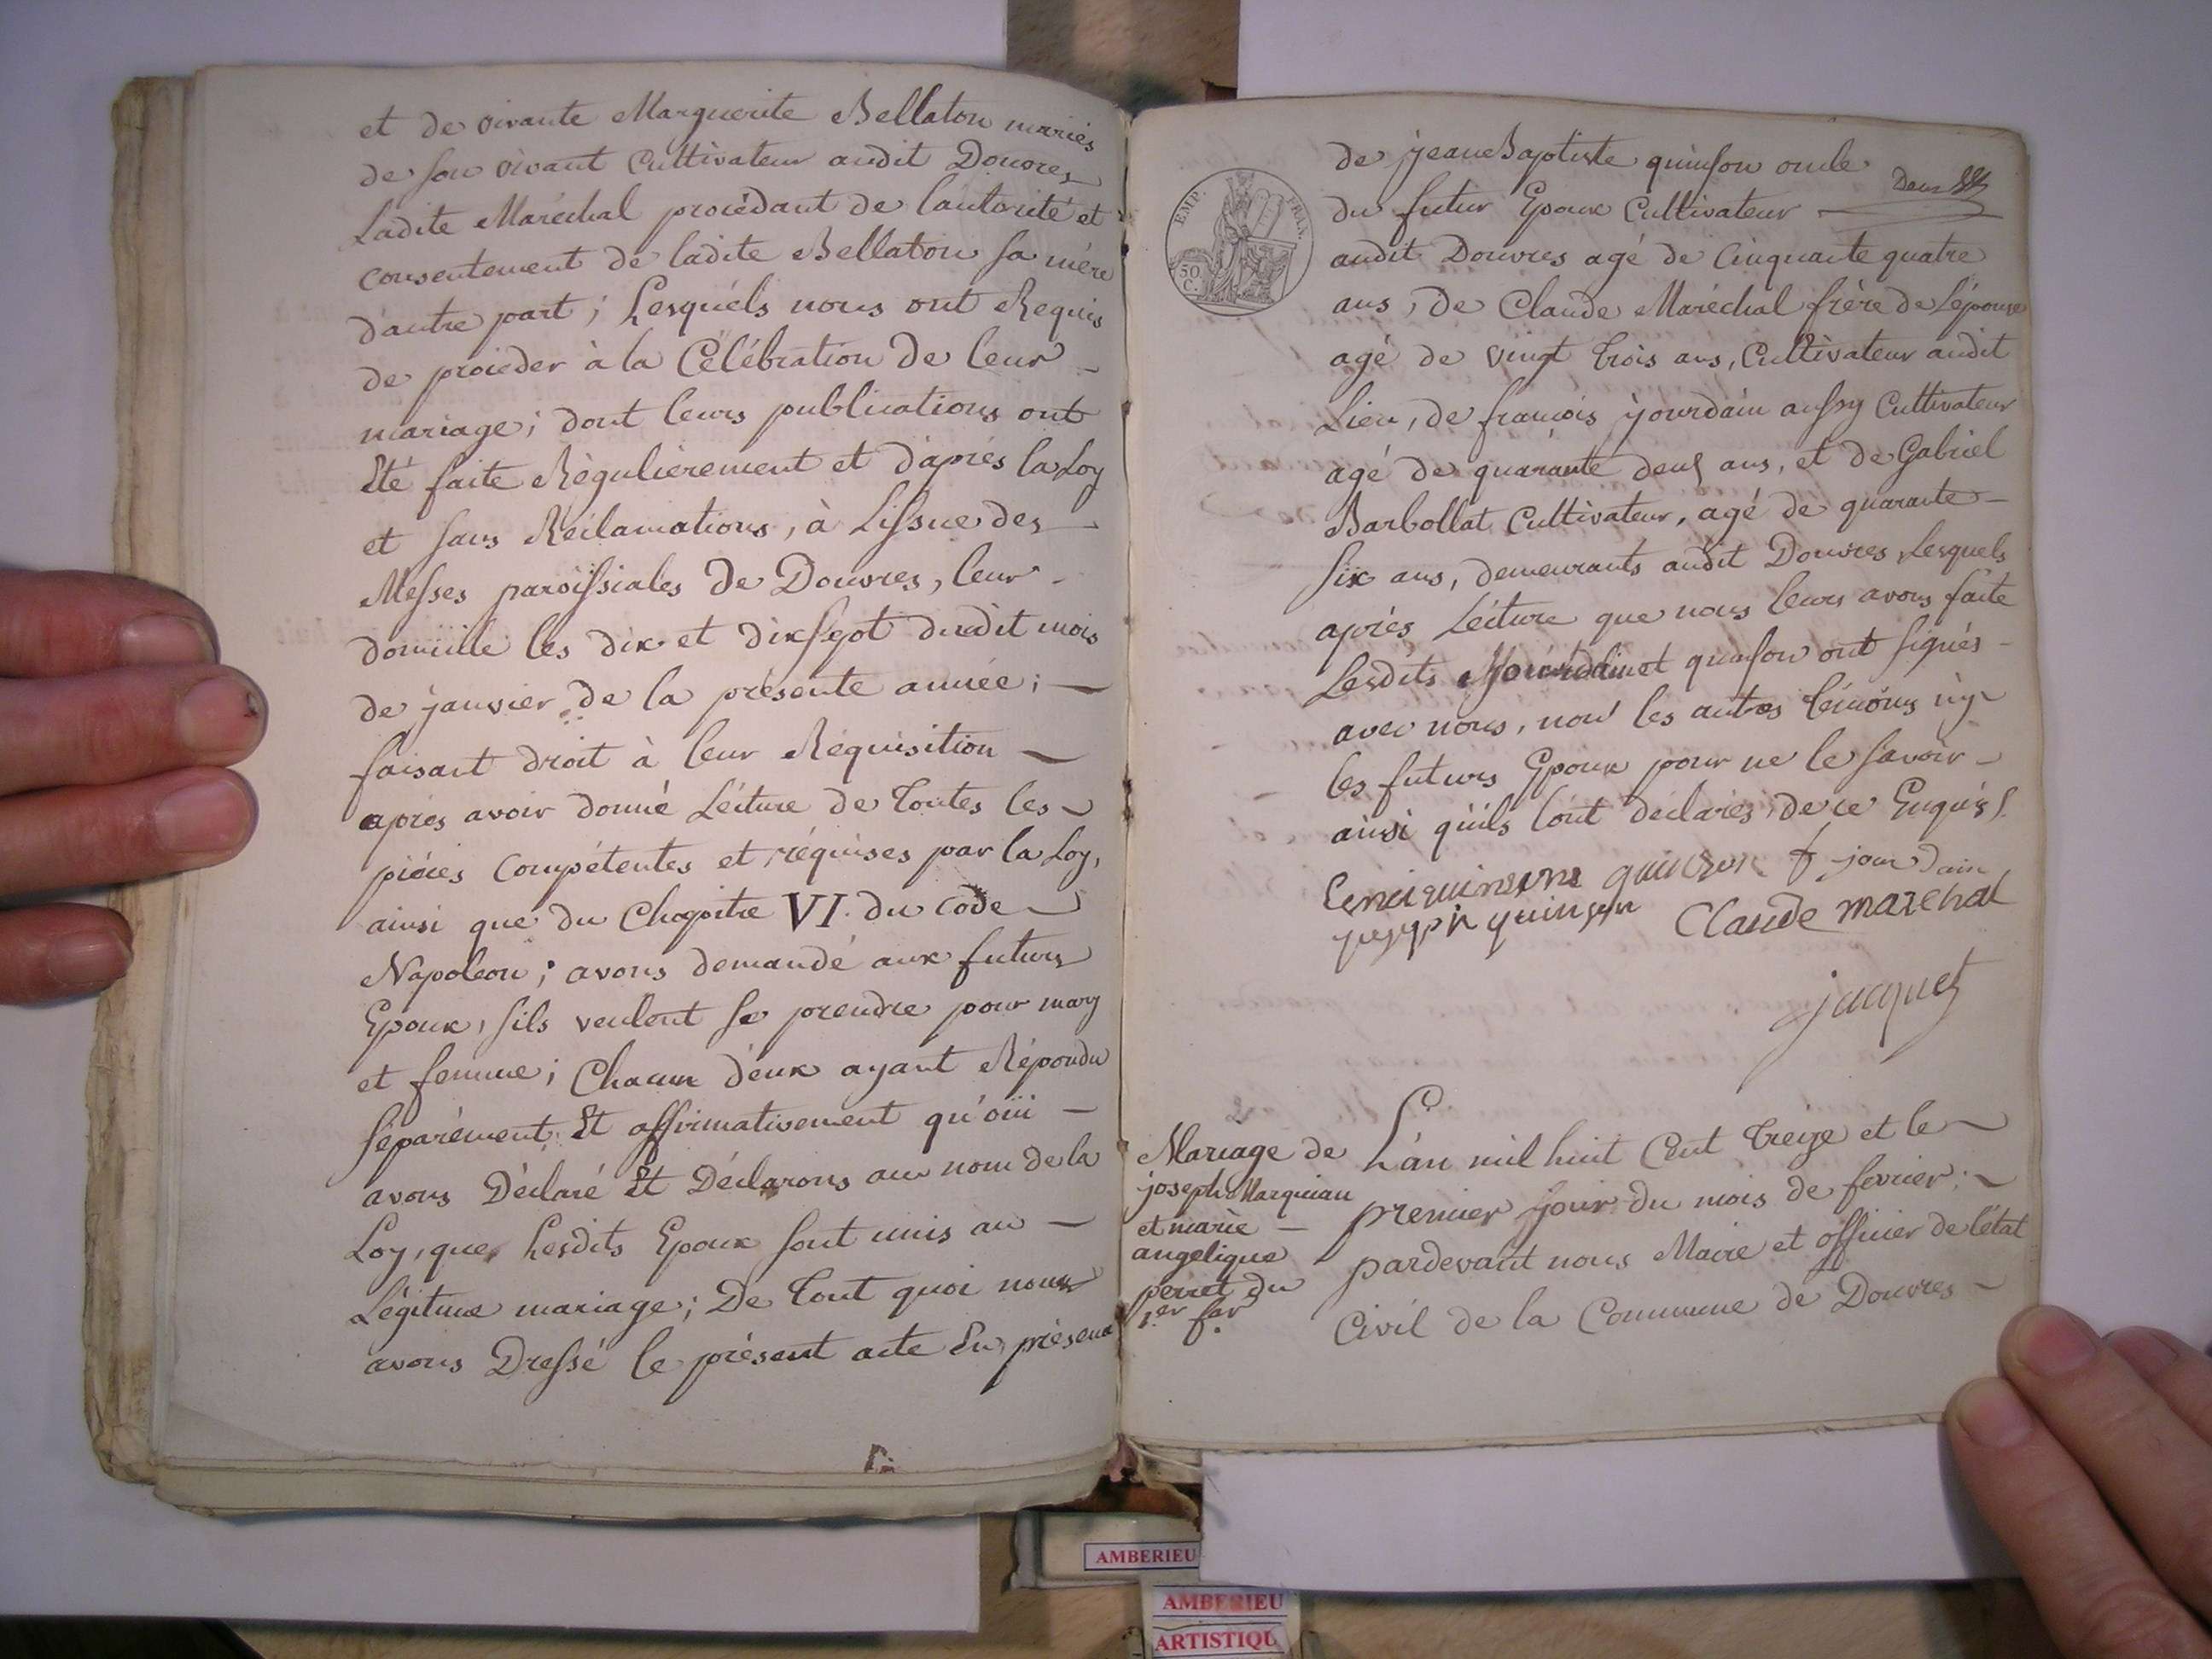 et de vivante Marguerite Bellaton mariés
de son vivant Cultivateur audit Douvres
Ladite Maréchal procédant de lautorité et
consentement de ladite Bellaton sa mère
d'autre part ; Lesquéls nous ont Requis
de procèder à la Célébration de leur -
mariage ; dont leurs publications ont
Eté faite Régulièrement et d'après la Loy
et sans Réclamations, à Lissue des -
Messes paroissiales de Douvres, leur -
domicile les dix et dixsept dudit mois
de janvier de la présente année ; -
faisant droit à leur Réquisition -
après avoir donné Lécture de toutes les -
pièces compétentes et réquises par la Loy,
ainsi que du Chapitre VI. du code -
Napoléon ; avons demandé aux futurs
Epoux, sils veulent se prendre pour mary
et femme ; Chacun d'eux ayant Répondu
séparément Et affirmativement qu'oui -
avons Déclaré Et Déclarons au nom de la
Loy, que Lesdits Epoux sont unis au -
Légitime mariage ; De tout quoi nous
avons Dressé le présent acte En présence
EMP. FRAN.
50 C.
de jean Baptiste quinson oncle
du futur Epoux Cultivateur -
audit Douvres agé de Cinquante quatre
ans, de Claude Maréchal frère de Lépouse
agé de vingt trois ans, Cultivateur audit
Lieu, de francois jourdain aussy Cultivateur
agé de quarante deux ans, et de Gabriel
Barbollat Cultivateur, agé de quarante -
six ans, demeurants audit Douvres Lesquels
après Lécture que nous leurs avons faite
Lesdits Jourdain et quinson ont signés -
avec nous, non les autres témoins ny
les futurs Epoux pour ne le savoir -
ainsi quils lont déclarés, de ce Enquis.
quinson f jourdain
joseph quinson Claude marechal
jacquet
Mariage de
joseph Marquian
et marie -
angelique
perret du
1.er fev.
L'an mil huit Cent treize et le -
premier jour du mois de fevrier ; -
pardevant nous Maire et officier de létat
Civil de la Commune de Douvres -
AMBERIEU
AMBERIEU
ARTISTIQU